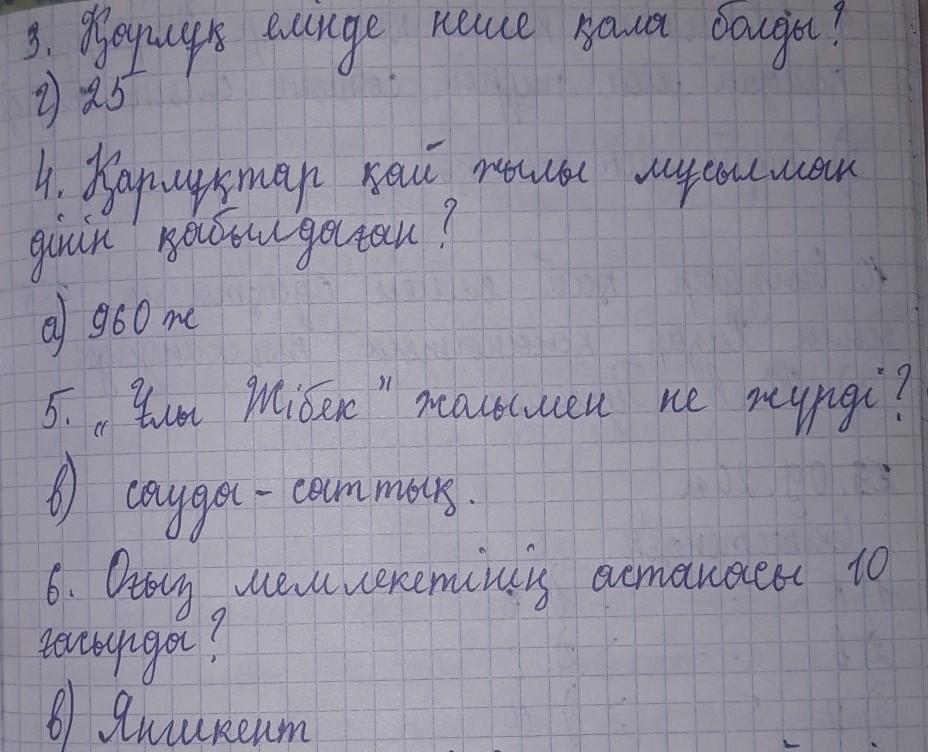 3. Қарлұқ елінде неше қала болды?
г) 25
4. Қарлұқтар қай жылы мұсылман
дінін қабылдаған?
а) 960 ж
5. „Ұлы Жібек" жолымен не жүрді?
в) сауда-саттық.
6. Оғыз мемлекетінің астанасы 10
ғасырда?
в) Янгикент